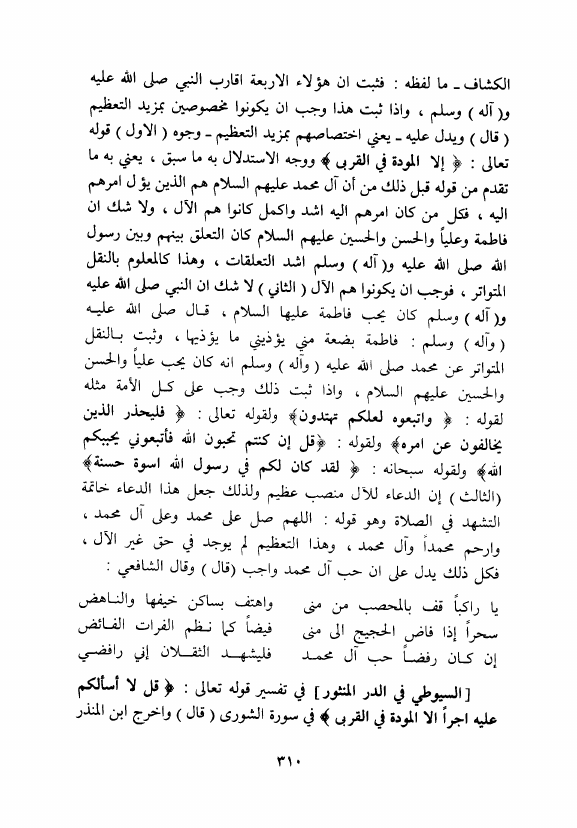 الكشاف ـ ما لفظه : فثبت ان هؤلاء الاربعة اقارب النبي صلى الله عليه
و( آله ) وسلم ، واذا ثبت هذا وجب ان يكونوا مخصوصين بمزيد التعظيم
( قال ) ويدل عليه ـ يعني اختصاصهم بمزيد التعظيم ـ وجوه ( الاول ) قوله
تعالى : ﴿ إلا المودة في القربى ﴾ ووجه الاستدلال به ما سبق ، يعني به ما
تقدم من قوله قبل ذلك من أن آل محمد عليهم السلام هم الذين يؤل امرهم
اليه ، فكل من كان امرهم اليه اشد واكمل كانوا هم الآل ، ولا شك ان
فاطمة وعلياً والحسن والحسين عليهم السلام كان التعلق بينهم وبين رسول
الله صلى الله عليه و( آله ) وسلم اشد التعلقات ، وهذا كالمعلوم بالنقل
المتواتر ، فوجب ان يكونوا هم الآل ( الثاني ) لا شك ان النبي صلى الله عليه
و( آله ) وسلم كان يحب فاطمة عليها السلام ، قال صلى الله عليه
( وآله ) وسلم : فاطمة بضعة مني يؤذيني ما يؤذيها ، وثبت بالنقل
المتواتر عن محمد صلى الله عليه ( وآله ) وسلم انه كان يحب علياً والحسن
والحسين عليهم السلام ، واذا ثبت ذلك وجب على كل الأمة مثله
لقوله : ﴿ واتبعوه لعلكم تهتدون﴾ ولقوله تعالى : ﴿ فليحذر الذين
يخالفون عن امره﴾ ولقوله : ﴿قل إن كنتم تحبون الله فأتبعوني يحببكم
الله﴾ ولقوله سبحانه : ﴿ لقد كان لكم في رسول الله اسوة حسنة﴾
( الثالث ) إن الدعاء للآل منصب عظيم ولذلك جعل هذا الدعاء خاتمة
التشهد في الصلاة وهو قوله : اللهم صل على محمد وعلى آل محمد ،
وارحم محمداً وآل محمد ، وهذا التعظيم لم يوجد في حق غير الآل ،
فكل ذلك يدل على ان حب آل محمد واجب ( قال ) وقال الشافعي :
يا راكباً قف بالمحصب من منى واهتف بساكن خيفها والناهض
سحراً إذا فاض الحجيج الى منى فيضاً كما نظم الفرات الفائض
إن كان رفضاً حب آل محمد فليشهد الثقلان إني رافضي
[ السيوطي في الدر المنثور ] في تفسير قوله تعالى : ﴿ قل لا أسألكم
عليه اجراً الا المودة في القربى ﴾ في سورة الشورى ( قال ) واخرج ابن المنذر
٣١٠